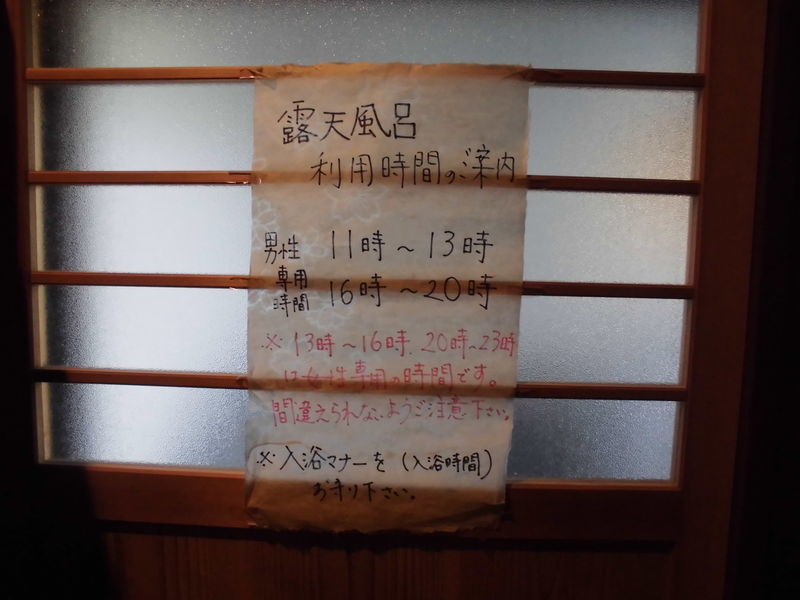 露天風呂
利用時間のご案内
男性専用時間 11時～13時
16時～20時
※13時～16時、20時~23時
は女性専用の時間です。
間違えられないようご注意下さい。
※入浴マナーを(入浴時間)
お守り下さい。